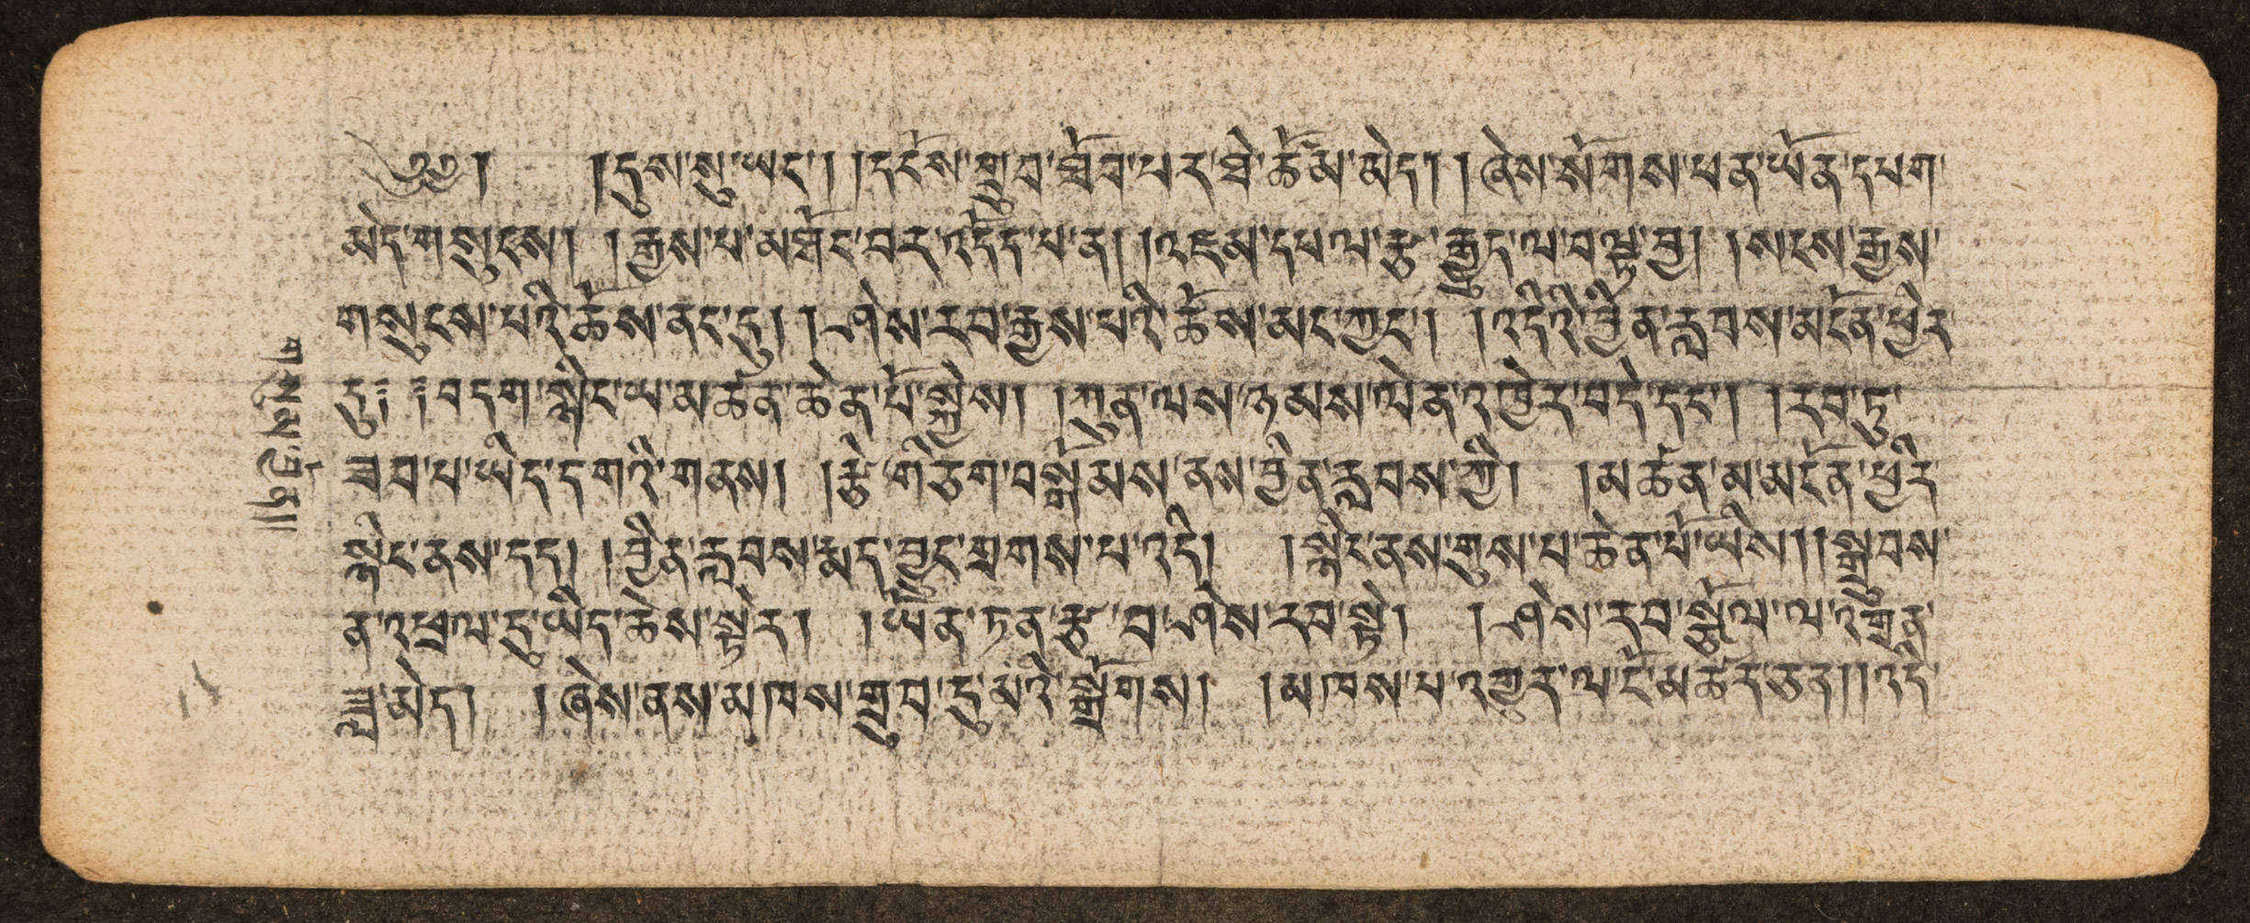 ༄༅། །དུས་སུ་ཡང་། །དངོས་གྲུབ་ཐོབ་པར་ཐེ་ཚོམ་མེད། །ཞེས་སོགས་ཕན་ཡོན་དཔག་
མེད་གསུངས། །རྒྱས་པ་མཐོང་བར་འདོད་པ་ན། །འཇམ་དཔལ་རྩ་རྒྱུད་ལ་བལྟ་བྱ། །སངས་རྒྱས་
གསུངས་པའི་ཆོས་ནང་དུ། །ཤེས་རབ་རྒྱས་པའི་ཆོས་མང་ཀྱང་། །འདིའི་བྱིན་རླབས་མངོན་ཕྱིར་
དུ༔ ༔བདག་སྙིང་ཡ་མཚན་ཆེན་པོ་སྐྱེས། །ཀུན་ལས་ཉམས་ལེན་འཁྱེར་བདེ་དང་། །རབ་ཏུ་
ཟབ་པ་ཡིད་དགའི་གནས། །རྩེ་གཅིག་བསྒོམས་ནས་བྱིན་རླབས་ཀྱི། །མཚན་མ་མངོན་ཕྱིར་
སྙིང་ནས་དད། །བྱིན་རླབས་རྨད་བྱུང་གྲགས་པ་འདི། །སྙིང་ནས་གུས་པ་ཆེན་པོ་ཡིས། །སྒྲུབས་
ན་འཕྲལ་དུ་ཡིད་ཆེས་སྟེར། །ཡོན་ཏན་རྩ་བ་ཤེས་རབ་སྟེ། །ཤེས་རབ་སྩོལ་ལ་འགྲན་
ཟླ་མེད། །ཞེས་ནས་མཁས་གྲུབ་དུ་མའི་སྒྲོགས། །མཁས་པ་འགྱུར་ལ་ངོ་མཚར་ཅན། །འདི་